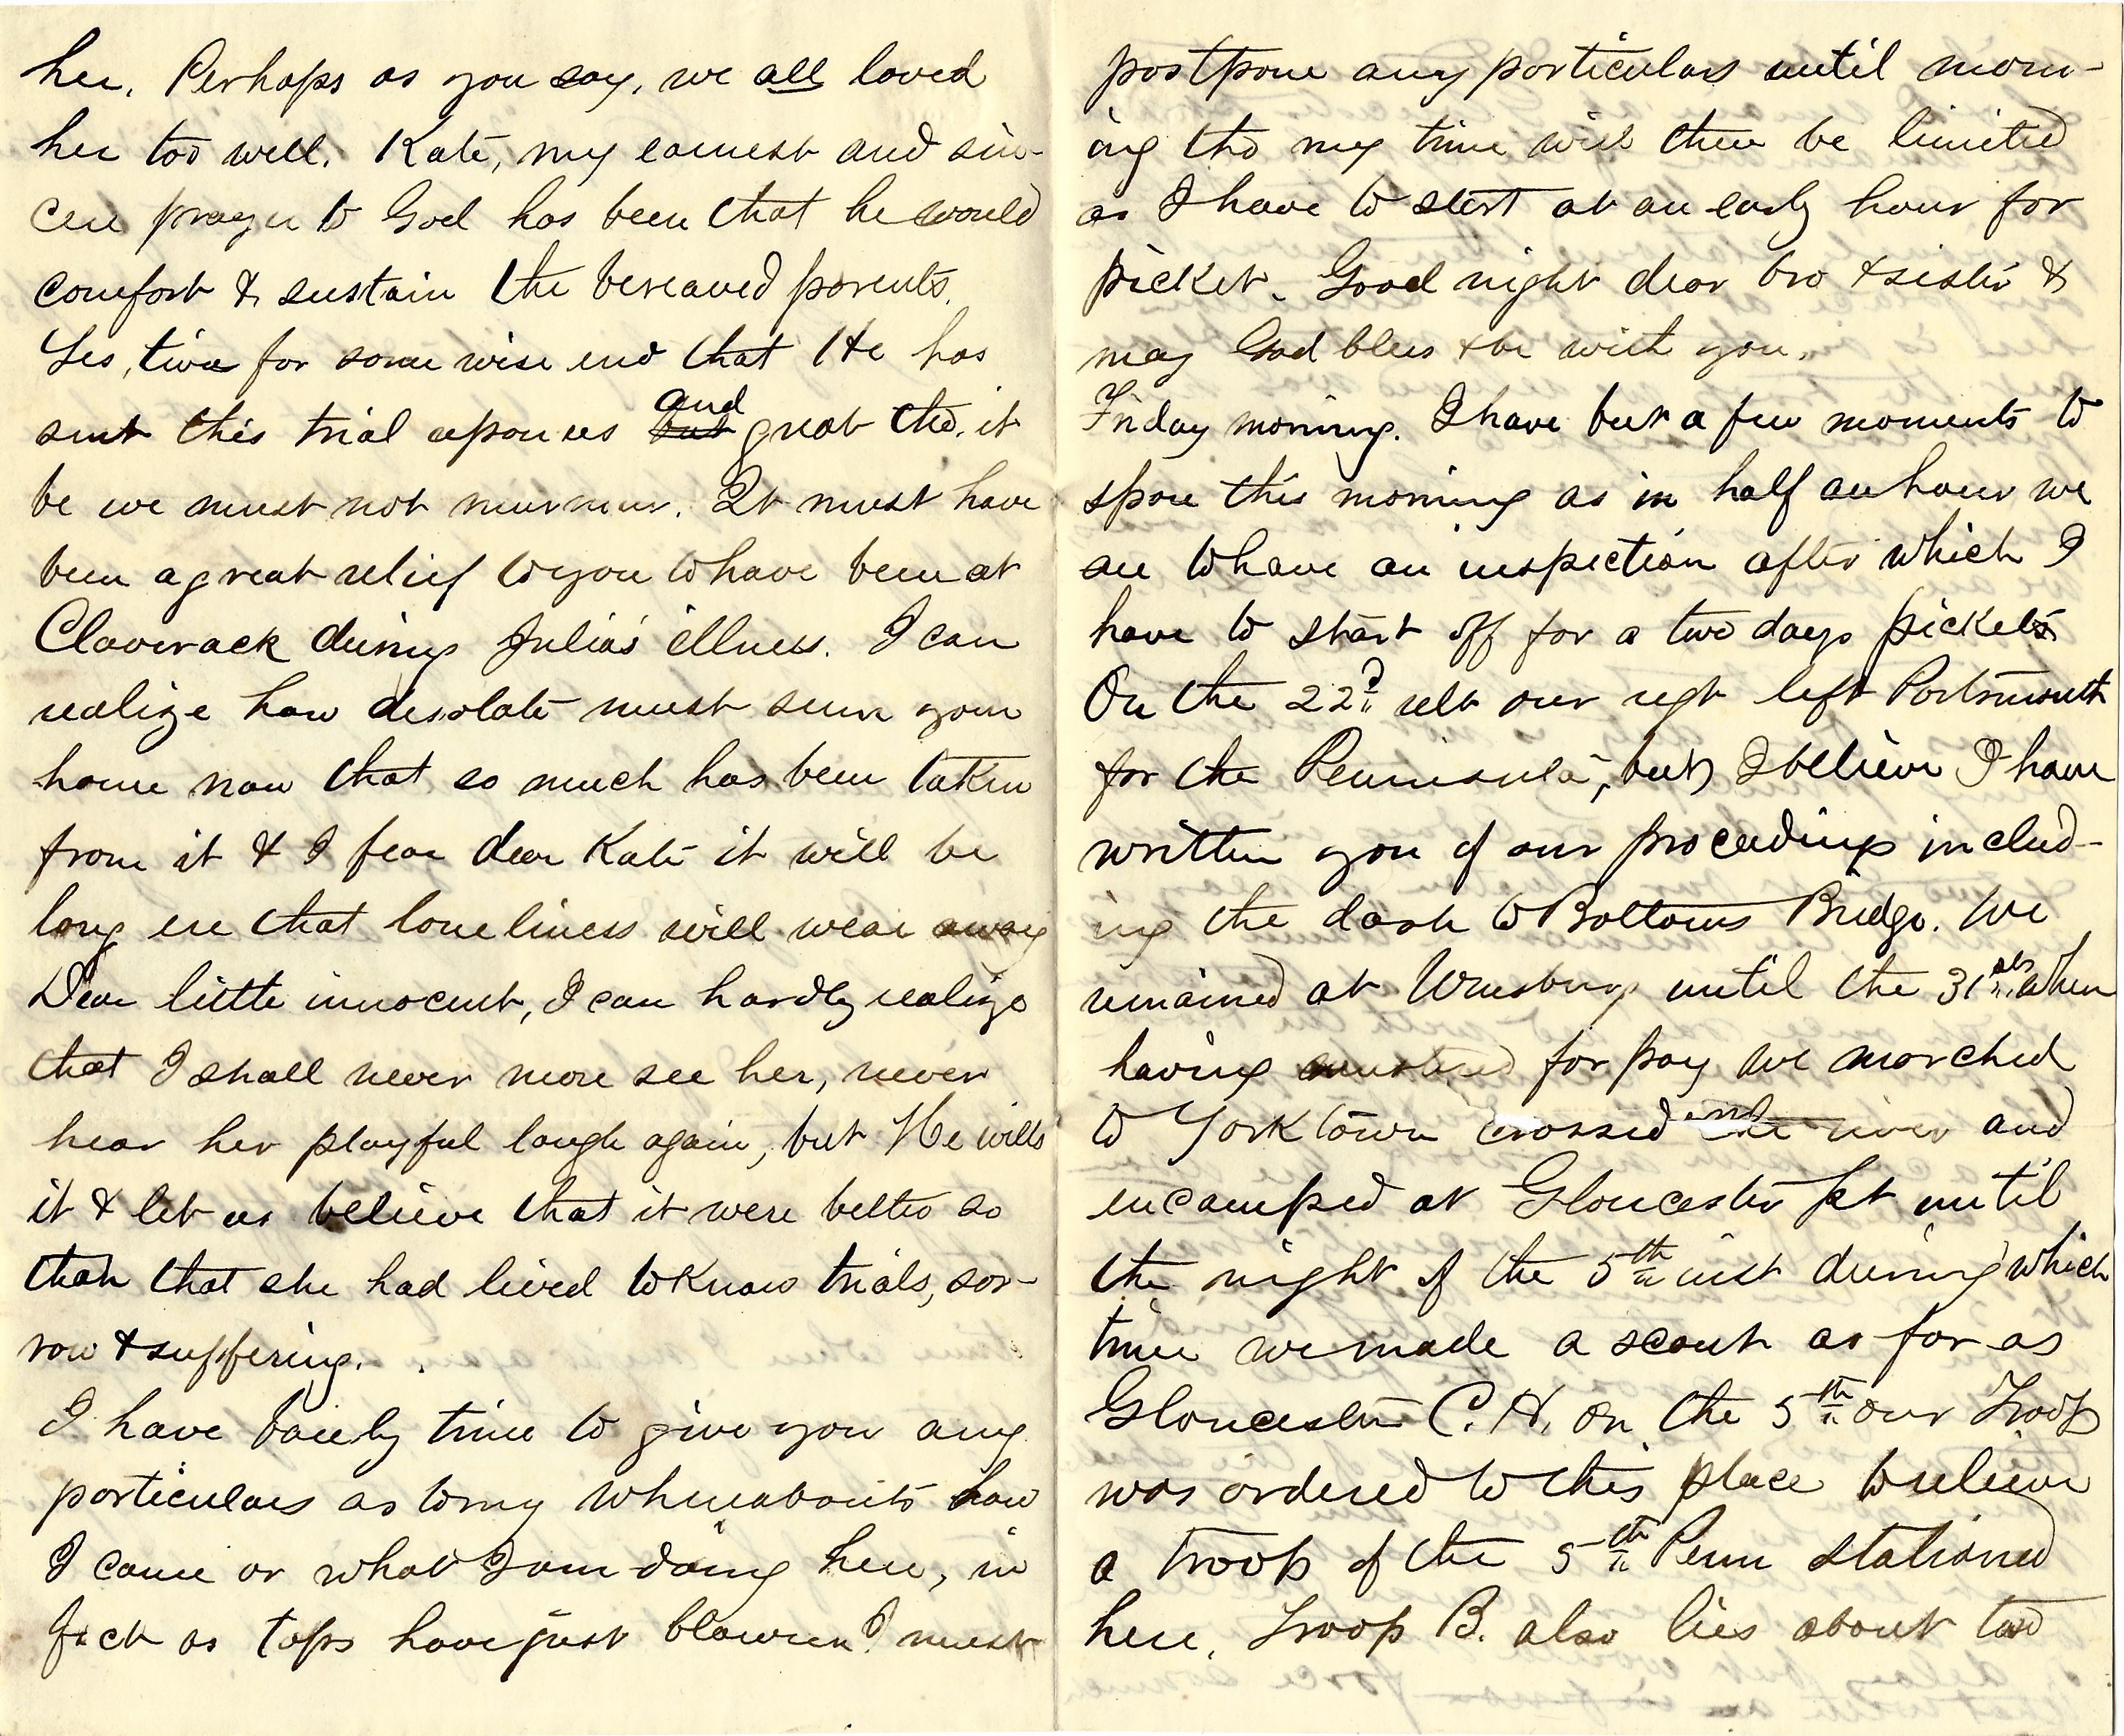 her. Perhaps as you say, we all loved
her too well. Kate, my earnest and sin-
cere prayer to God has been that he would
comfort & sustain the bereaved parents.
Yes, twas for some wise end that He has
sent this trial upon us but and great tho. it
be we must not murmur. It must have
been a great relief to you to have been at
Claverack during Julia's illness. I can
realize how desolate must seem your
home now that so much has been taken
from it & I fear dear Kate it will be
long ere that loneliness will wear away
Dear little innocent, I can hardly realize
that I shall never more see her, never
hear her playful laugh again, but He wills
it & let us believe that it were better so
than that she had lived to know trials, sor-
row & suffering.
I have barely time to give you any
particulars as to my whereabouts how
I came or what I am doing here, in
fact as taps have just blown I must
postpone any particulars until morn-
ing tho my time will then be limited
as I have to start at an early hour for
picket. Good night dear bro & sister &
may God bless & be with you.
Friday morning. I have but a few moments to
spare this morning as in half an hour we
are to have an inspection after which I
have to start off for a two days picket
On the 22d ult our regt left Portsmouth
for the Peninsula, but I believe I have
written you of our proceedings includ-
ing the dash to Bottoms Bridge. We
remained at Wmsburg until the 31st when
having mustered for pay we marched
to Yorktown crossed the river and
encamped at Gloucester pt until
the night of the 5th inst during which
time we made a scout as far as
Gloucester C. H. On the 5th our Troop
was ordered to this place to relieve
a troop of the 5th Penn stationed
here. Troop B. also lies about two